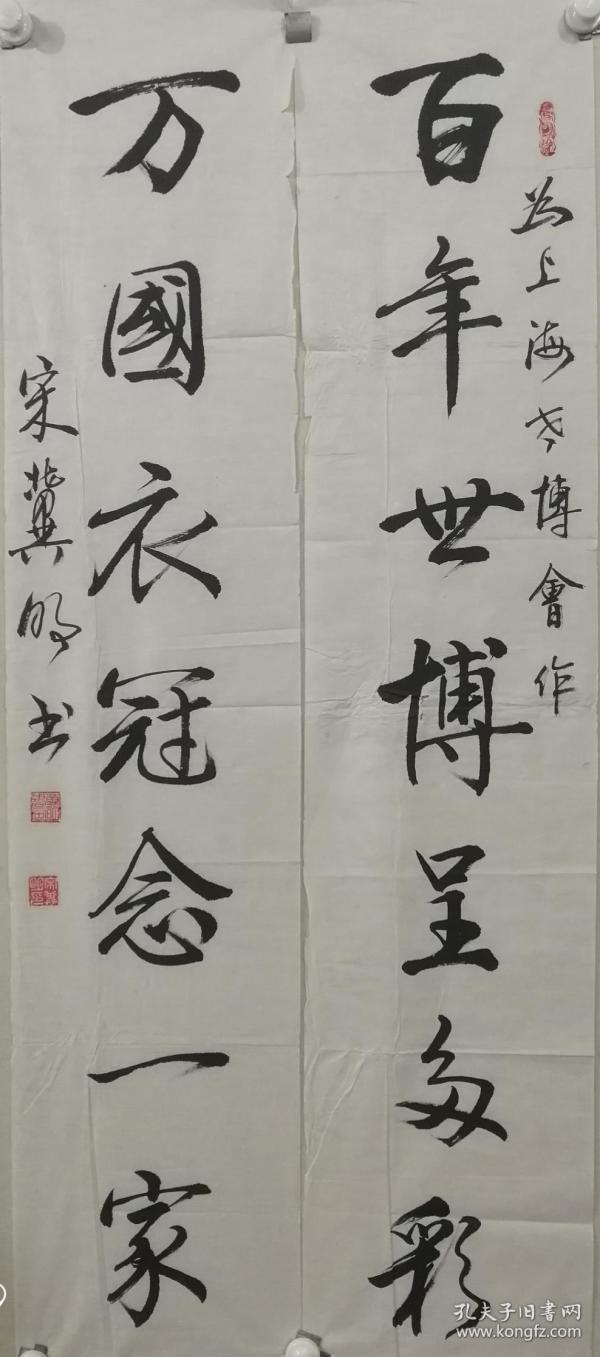 为上海世博會作
百年世博呈多彩
万國衣冠念一家
宋冀明书
孔夫子旧书网
www.kongfz.com